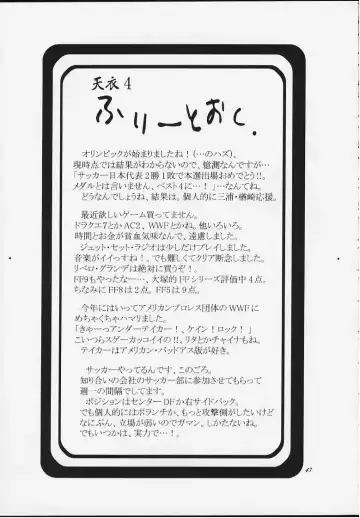 天衣4
ふりーとおく.
オリンピックが始まりましたね！(…のハズ)。
現時点では結果がわからないので、憶測なんですが…
「サッカー日本代表2勝1敗で本選出場おめでとう!!。
メダルとは言いません、ベスト4に…！」…なんてね。
どうなんでしょうね、結果は。個人的に三浦・楢崎応援。
最近欲しいゲーム買ってません。
ドラクエ7とかAC2、WWFとかね。他いろいろ。
時間とお金が貧血気味なんで、遠慮しました。
ジェット・セット・ラジオは少しだけプレイしました。
音楽がイイっすね！、でも難しくてクリア断念しました。
リベロ・グランデは絶対に買うぞ！。
FF9もやったな―…、大塚的FFシリーズ評価中4点。
ちなみにFF8は2点。FF5は9点。
今年にはいってアメリカンプロレス団体のWWFに
めちゃくちゃハマリました。
「きゃーっアンダーテイカー！、ケイン！ロック！」
こいつらスゲーカッコイイの!!、リタとかチャイナもね。
テイカーはアメリカン・バッドアス版が好き。
サッカーやってるんです、このごろ。
知り合いの会社のサッカー部に参加させてもらって
週一の間隔でしてます。
ポジションはセンターDFか右サイドバック。
でも個人的にはボランチか、もっと攻撃側がしたいけど
なにぶん、立場が弱いのでガマン。しかたないね。
でもいつかは、実力で…！。
47